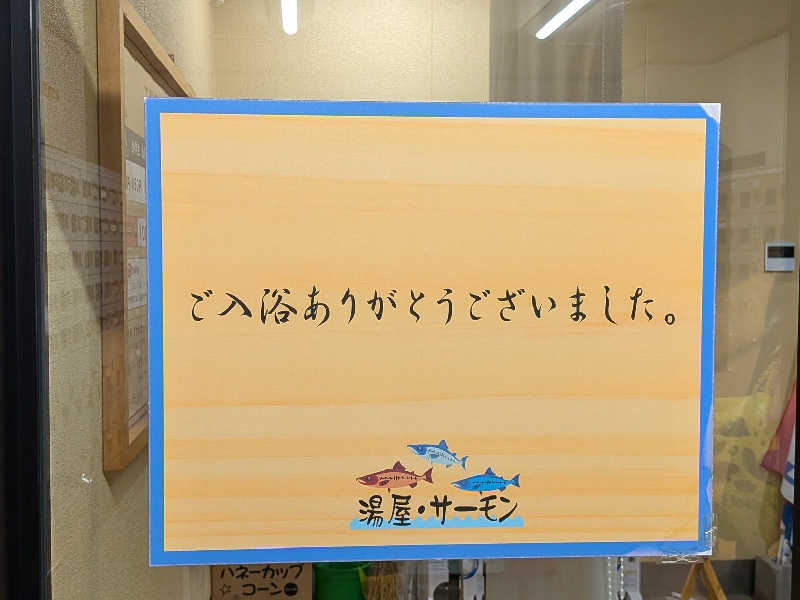 ご入浴ありがとうございました。
湯屋・サーモン
ハネーカップ
☆コーン